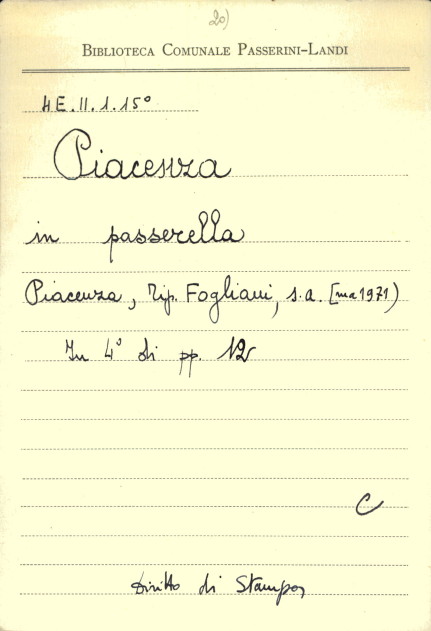 20)
BIBLIOTECA COMUNALE PASSERINI-LANDI
4E.II.1.15°
Piacenza
in passerella
Piacenza, Tip. Fogliani, s.a. [ma 1971)
In 4° di pp. 12
C
Diritto di Stampa